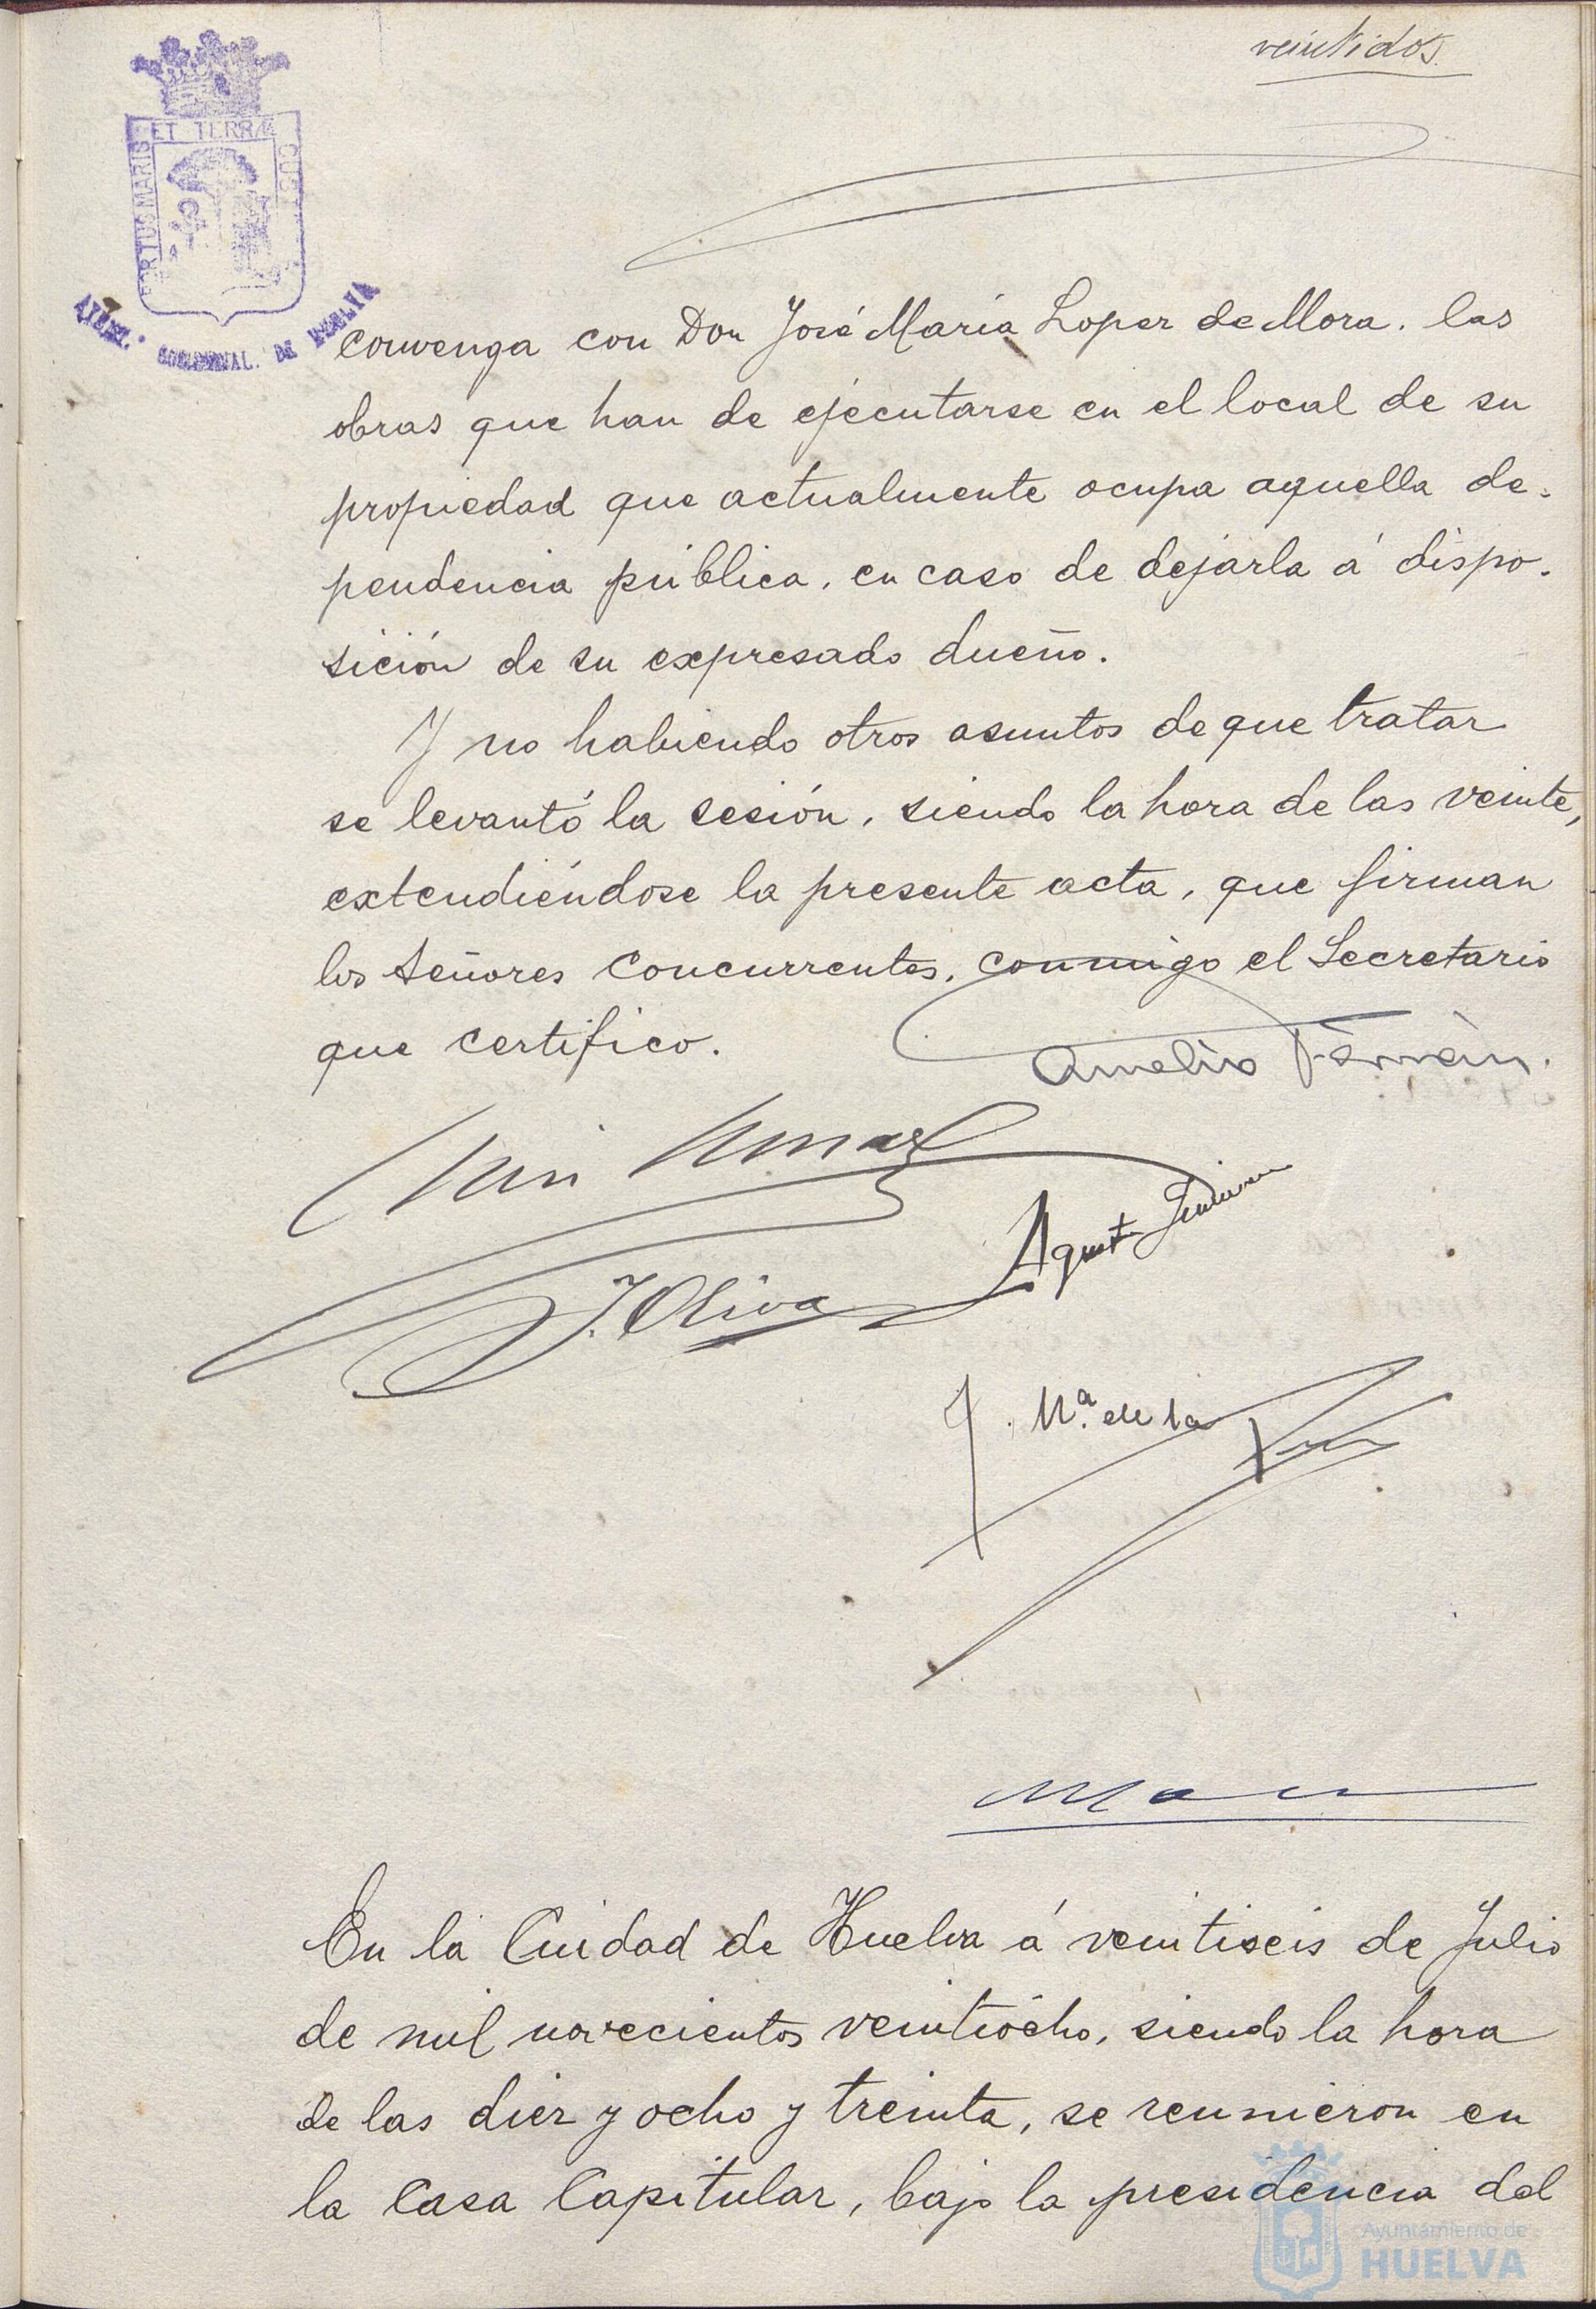 veintidos.
PORTUS MARIS ET TERRÆ CUST
AYUNT.º CONSTITUCIONAL. DE HUELVA
convenga con Don José María Loper de Mora. las
obras que han de ejecutarse en el local de su
propiedad que actualmente ocupa aquella de-
pendencia pública. en caso de dejarla á dispo-
sición de su expresado dueño.
Y no habiendo otros asuntos de que tratar
se levantó la sesión, siendo la hora de las veinte,
extendiéndose la presente acta, que firman
los Señores concurrentes, conmigo el Secretario
que certifico.
J. Oliva
J. Mª. de la
En la Ciudad de Huelva á veintiseis de Julio
de mil novecientos veintiócho, siendo la hora
de las dier y ocho y treinta, se reunieron en
la Casa Capitular, bajo la presidencia del
Ayuntamiento de
HUELVA